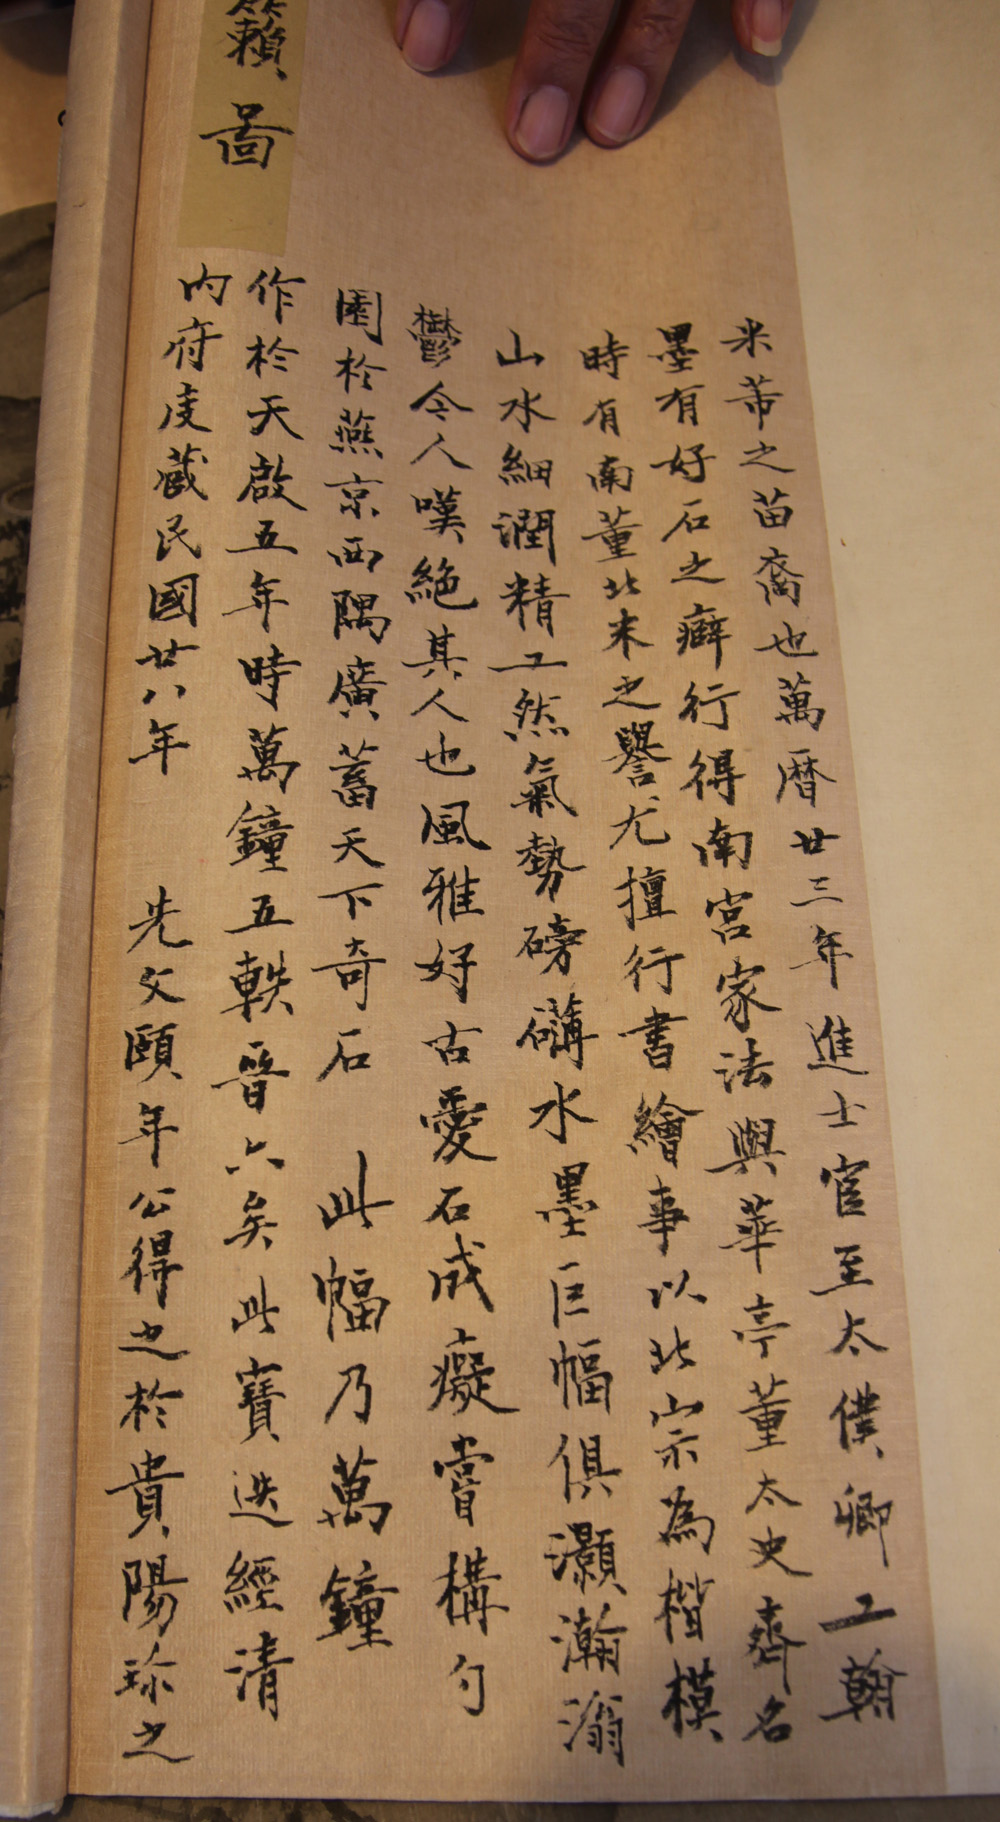 籟圖
米芾之苗裔也萬暦廿三年進士官至太僕卿工翰
墨有好石之癖行得南宮家法與華亭董太史齊名
時有南董北米之譽尤擅行書繪事以北宗為楷模
山水細潤精工然氣勢磅礴水墨巨幅俱灝瀚滃
鬱令人嘆絕其人也風雅好古愛石成癡嘗構勺
園於燕京西隅廣蓄天下奇石 此幅乃萬鐘
作於天啟五年時萬鐘五軼晉六矣此寶迭經清
內府庋藏民國廿八年 先父頤年公得之於貴陽珍之